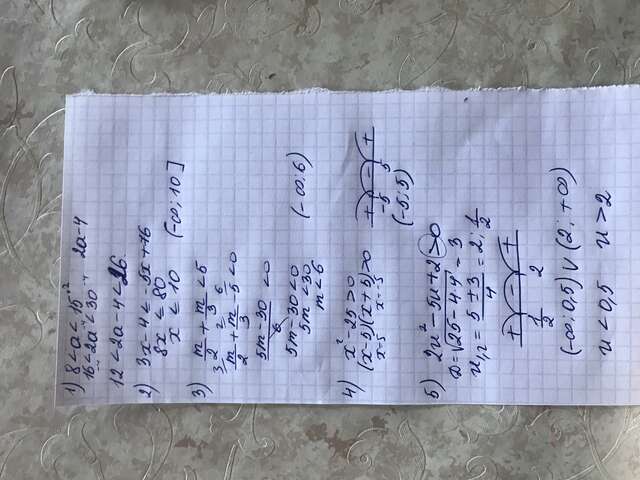 1) 8 < a < 15 ·2
16 < 2a < 30 -4 2a-4
12 < 2a - 4 < 26.
2) 3x - 4 ≤ -5x + 76
8x ≤ 80
x ≤ 10 (-∞; 10]
3) m/2 + m/3 < 5
3 2 6
m/2 + m/3 - 5 < 0
5m - 30 / 6 < 0
5m - 30 < 0 (-∞; 6)
5m < 30
m < 6
4) x² - 25 > 0
(x - 5)(x + 5) > 0
x = 5 x = -5
+ - +
-5 5
(-5; 5)
5) 2u² - 5u + 2 > 0
D = √25 - 4·4 = 3
u₁,₂ = 5 ± 3 / 4 = 2; 1/2
+ - +
1/2 2
(-∞; 0,5) ∨ (2; +∞)
u < 0,5 u > 2